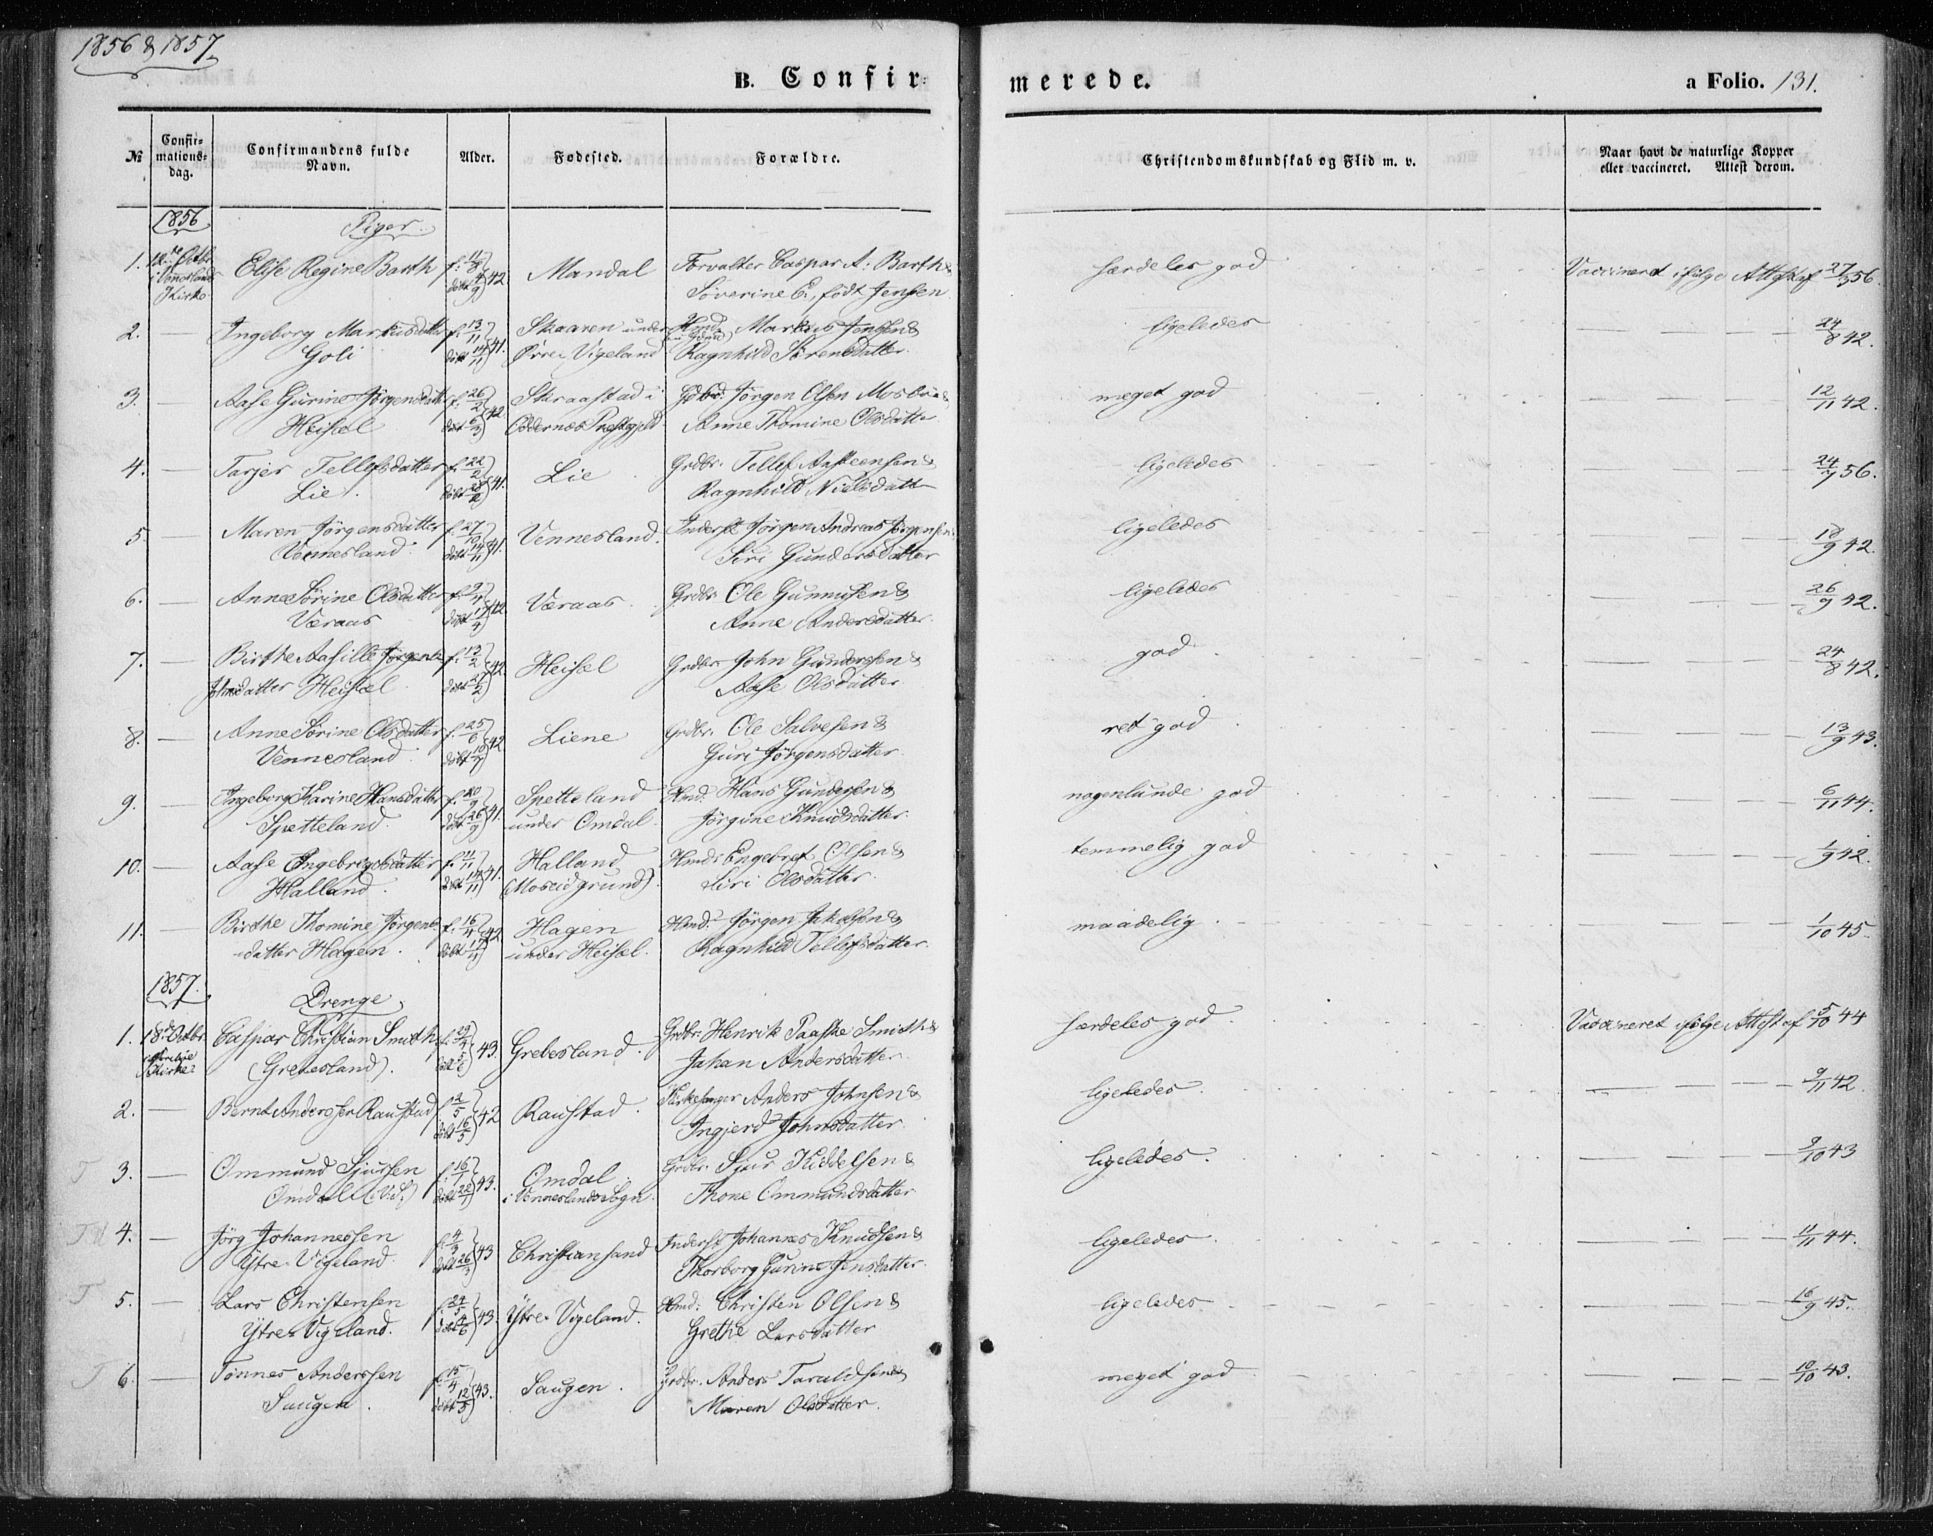 1856 & 1857
B. Confirmerede.
a Folio. 131.
№
Confirmationsdag.
Confirmandens fulde Navn.
Alder.
Fødested.
Forældre.
Christendomskundskab og Flid m. v.
Naar havt de naturlige Kopper eller vaccineret. Attest derom.
1856
Piger.
1. Octbr. Kirke Elise Regine Barth Mandal Forvalter Caspar A. Barth & særdeles god Vaccineret ifølge Attest af 27/9 56.
Søverine E., født Jensen
2. — Ingeborg Markusdatter f. 13/11 41. Skaaren under Markus Jensen & ligeledes — 24/8 42.
Goli døbt 14/11 Øvre Vigeland Ragnhild Sørensdatter.
3. — Aase Gurine Jørgensdatter f. 26/2 42 Skraastad i Jørgen Olsen Mosbue & meget god — 12/11 42.
Heisel Oddernes Prestgjeld Anne Thomine Olsdatter
4. — Tarjer Tellefsdatter f. 22/2 41. Lie Grdbr. Tellef Aasteensen & ligeledes — 24/7 56.
Lie. Ragnhild Nielsdatter
5. — Maren Jørgensdatter f. 27/10 41. Vennesland. Inderst Jørgen Andreas Jørgensen ligeledes — 18/9 42.
Vennesland døbt 14/11 Siri Gundersdatter
6. — Anne Sørine Olsdatter 42. Væraas. Grdbr. Ole Gunnusen & ligeledes — 26/9 42.
Væraas Anne Andersdatter.
7. — Birthe Aasille f. 12/2 42. Heisel Grdbr. John Gundersen & god. — 24/8 42.
Johnsdatter Heisel døbt 27/2 Aase Olsdatter
8. — Anne Sørine Olsdatter f. 25/6 42 Liene Grdbr. Ole Salvesen & ret god — 13/9 43.
Vennesland. Guri Jørgensdatter.
9. — Ingeborg Karine Hansdatter f. 20/9 41. Spetteland Hmd. Hans Gundersen & nogenlunde god — 6/11 44.
Spetteland. døbt 26/9 under Omdal. Jørgine Knudsdatter.
10. — Aase Engebregtsdatter f. 11/11 41. Halland Hmd. Engebret Olsen & temmelig god — 1/9 42.
Halland. døbt 14/11 (Moseidgrund). Siri Olsdatter.
11. — Birthe Thomine Jørgens- f. 16/4 42 Hagen Hmd. Jørgen Jakobsen & maadelig. — 1/10 45.
datter Hagen. under Heisel. Ragnhild Tellefsdatter.
1857.
Drenge
1. 18de Octbr. Kirke Caspar Christian Smith 43. Grebesland. Grdbr. Henrik Paaske Smith & særdeles god. Vaccineret ifølge Attest af 5/10 44
(Grebesland). Johan Andersdatter.
2. — Bernt Andersen Raustad f. 2/5 42 Raustad. Kirkesanger Anders Johnsen & ligeledes — 9/11 42.
døbt 16/5 Ingjerd Johnsdatter.
3. — Ommund Sjursen f. 16/7 43. Omdal Grdbr. Sjur Kiddelsen & ligeledes. — 9/10 43
Omdal i Venneslands Sogn. Thone Ommundsdatter
4. — Jørg Johannessen 43 Christiansand Inderst Johannes Knudsen & ligeledes. — 11/11 44.
Ytre Vigeland. Thorborg Gurine Jensdatter.
5. — Lars Christensen f. 24/5 43. Ytre Vigeland. Hmd. Christen Olsen & ligeledes. — 16/9 45.
Ytre Vigeland. Grethe Larsdatter
6. — Tønnes Andersen f. 15/4 43. Saugen. Grdbr. Anders Taraldsen & meget god — 10/10 43.
Saugen. døbt 12/5 Maren Olsdatter.